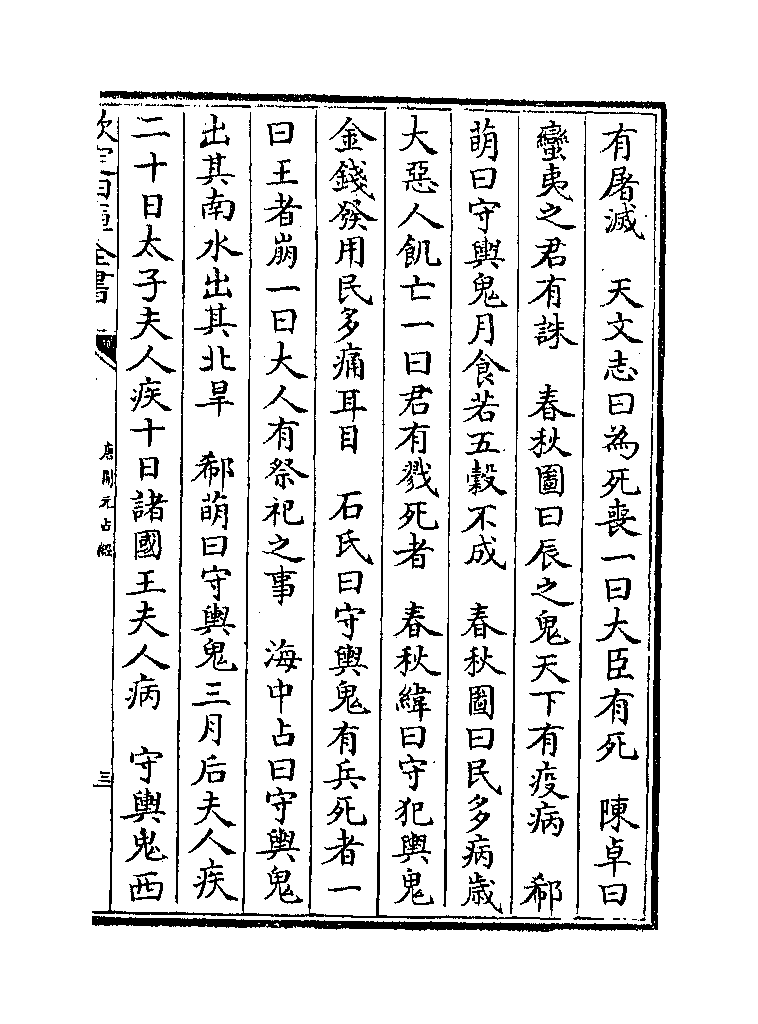 有屠滅　天文志曰為死喪一曰大臣有死　陳卓曰
蠻夷之君有誅　春秋圖曰辰之鬼天下有疫病　郗
萌曰守輿鬼月食若五穀不成　春秋圖曰民多病歳
大惡人飢亡一曰君有戮死者　春秋緯曰守犯輿鬼
金錢發用民多痛耳目　石氏曰守輿鬼有兵死者一
曰王者崩一曰大人有祭祀之事　海中占曰守輿鬼
出其南水出其北旱　郗萌曰守輿鬼三月后夫人疾
二十日太子夫人疾十日諸國王夫人病　守輿鬼西
欽定四庫全書
唐開元占經
三